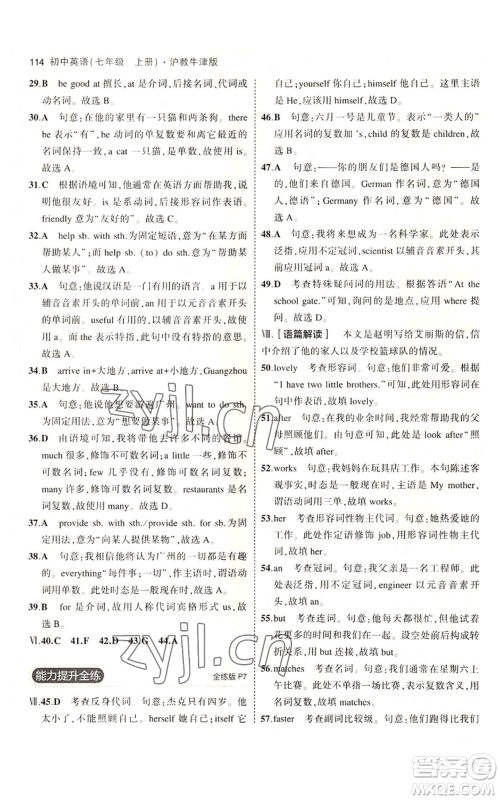 114 初中英语(七年级 上册)·沪教牛津版
29.B be good at 擅长,at 是介词,接名词、代词或
动名词。故选 B。
30.A 句意:在他的家里有一只猫和两条狗。there
be 表示“有”,be 动词的单复数要和离它最近的
名词保持一致,a cat 一只猫,是单数,be 动词用
is。故选 A。
31.C 根据语境可知,他通常在英语方面帮助我,说
明他很友好。应用形容词作表语。
friendly 意为“友好的”。故选 C。
32.A help sb. with 为固定短语,意为“在某方面
帮助某人”;help sb. (to) do sth. 意为“帮助某
人做某事”。故选 A。
33.A 句意:他说汉语和一门有用的语言。a 用于以
辅音音素开头的单词前,an 用于以元音音素开
头的单词前。useful 是以辅音音素开头的单词。
故选 A。
34.B arrive in+大地方,arrive at+小地方,Guangzhou
是大地方。故选 B。
35.A 句意:他们想要游遍广州。want to do sth.
为固定短语,意为“想要做某事”。故选 A。
36.D 由语境可知,我们能享受到许多不同的奢侈。
much 很多,修饰不可数名词;a little 一点儿,修
饰不可数名词;few 几乎没有,修饰可数名词复数;
many 许多,修饰可数名词复数。restaurants 是名词
复数,应用 many。故选 D。
37.A provide sb. with sth. = provide sth. for sb.,意
为“向某人提供某物”。故选 A。
38.A 句意:我相信他认为广州的一切都是有趣
的。everything“每件事;一切”,符合语境。故
选 A。
39.B for 是介词,故用人称代词宾格形式 us。故
选 B。
Ⅵ.40.C 41.F 42.D 43.G 44.A
能力提升全练 全练版 P7
Ⅶ.45.D 考查反身代词。句意:杰克只有四岁。他
太小了,不能自己穿衣服。herself 她自己;itself 它
自己;yourself 你自己;himself 他自己。由
主语是 He,可知应用 himself。故选 D。
46.B 句意:六月一号是儿童节。表示“一类人的”
应用名词复数加 's,child 的复数是 children,故
选 B。
47.A 句意:——你的朋友们是德国人吗?——是
的,他们来自德国。German 作名词,意为“德国
人,德语”;Germany 作名词,意为“德国”。故
选 A。
48.A 句意:我想成为一名科学家。此处表示
泛指,应用不定冠词,scientist 以辅音音素开头,其
前用 a。故选 A。
49.D 考查特殊疑问词的用法。根据答语“At the
school gate.”可知,应用 where 对地点进行
提问。故选 D。
Ⅷ.[语篇解读] 本文是赵明写给艾丽斯的信,信
中介绍了他的家人以及学校篮球队的情况。
50.lovely 考查形容词。句意:他们很可爱。根据
“I have two little brothers.”可知,应用形容词在
句中作表语。故填 lovely。
51.after 句意:在我的业余时间,我经常帮我的父
母照顾他们。由此可知,此处考查 look after“照
顾”。故填 after。
52.works 句意:我妈妈在玩具店工作。本句陈述客
观事实,时态为一般现在时,主语是单数,谓语
动词用三单。故填 works。
53.her 考查形容词性物主代词。句意:她热爱她的
工作。此处作定语修饰 job,应用形容词性物主代
词。故填 her。
54.an 考查冠词。句意:我父亲是一名工程师。此
处表示泛指,用不定冠词,engineer 以元音音素开
头。故填 an。
55.but 考查连词。句意:句意:我喜欢打篮球,但是我
在学校篮球队打得不是最好的。前后句是
转折关系。故填 but。
56.matches 考查名词复数。句意:我们通常在星期六上
午比赛。此处表示泛指,应用名词复数。故填
matches。
57.faster 考查副词比较级。句意:他们跑得比我们